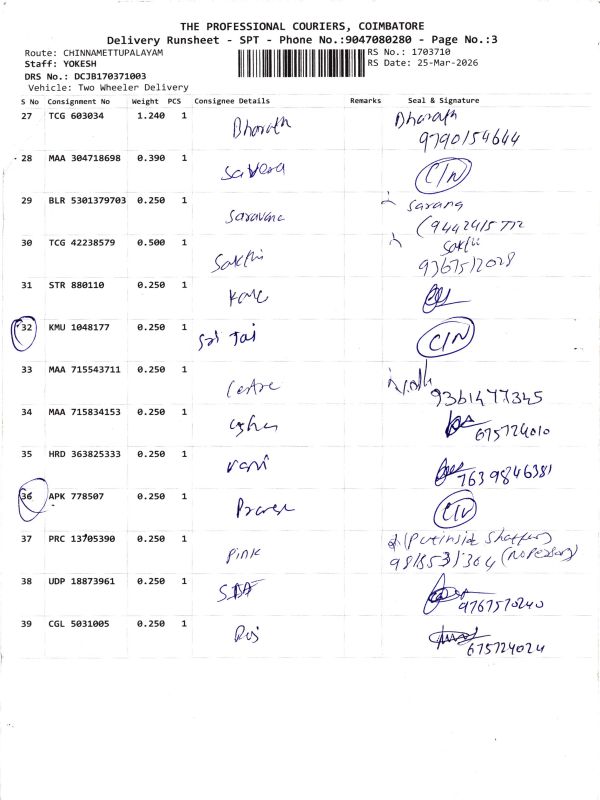 THE PROFESSIONAL COURIERS, COIMBATORE
Delivery Runsheet - SPT - Phone No.:9047080280 - Page No.:3
Route: CHINNAMETTUPALAYAM RS No.: 1703710
Staff: YOKESH RS Date: 25-Mar-2026
DRS No.: DCJB170371003
Vehicle: Two Wheeler Delivery
S No Consignment No Weight PCS Consignee Details Remarks Seal & Signature
27 TCG 603034 1.240 1 Bharath Bharath
9790154644
28 MAA 304718698 0.390 1 C/N
29 BLR 5301379703 0.250 1 Saravana Sarang
30 TCG 42238579 0.500 1 Sakthi Sakthi
9367512028
31 STR 880110 0.250 1
32 KMU 1048177 0.250 1 Sri Tai C/N
33 MAA 715543711 0.250 1 Centre
9361477345
34 MAA 715834153 0.250 1
675724010
35 HRD 363825333 0.250 1 Vani 7639846381
36 APK 778507 0.250 1
37 PRC 13705390 0.250 1 Pink (Put inside Shutter)
(No Person)
38 UDP 18873961 0.250 1
9767570240
39 CGL 5031005 0.250 1 Roj
675724024